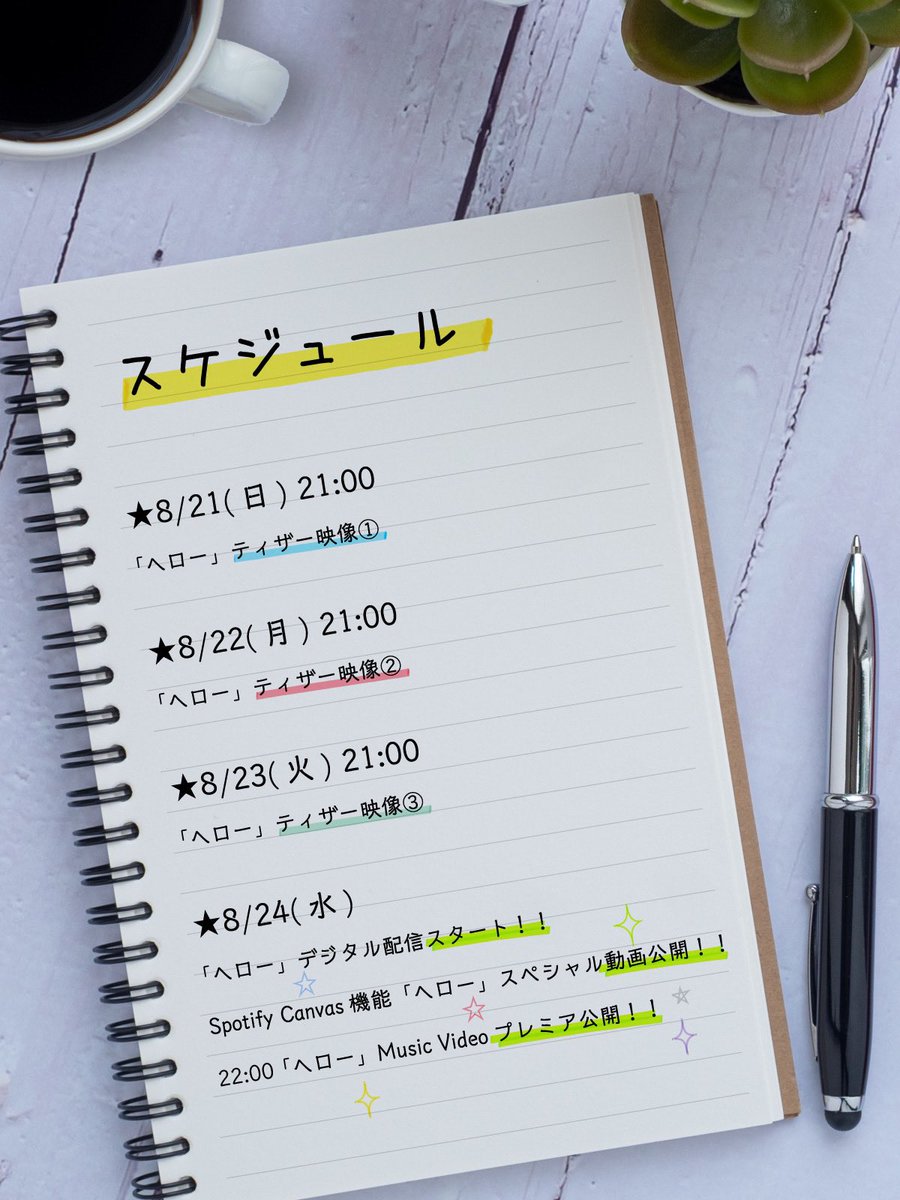 スケジュール
★8/21(日) 21:00
「ヘロー」ティザー映像①
★8/22(月) 21:00
「ヘロー」ティザー映像②
★8/23(火) 21:00
「ヘロー」ティザー映像③
★8/24(水)
「ヘロー」デジタル配信スタート！！
Spotify Canvas 機能「ヘロー」スペシャル動画公開！！
22:00「ヘロー」Music Video プレミア公開！！